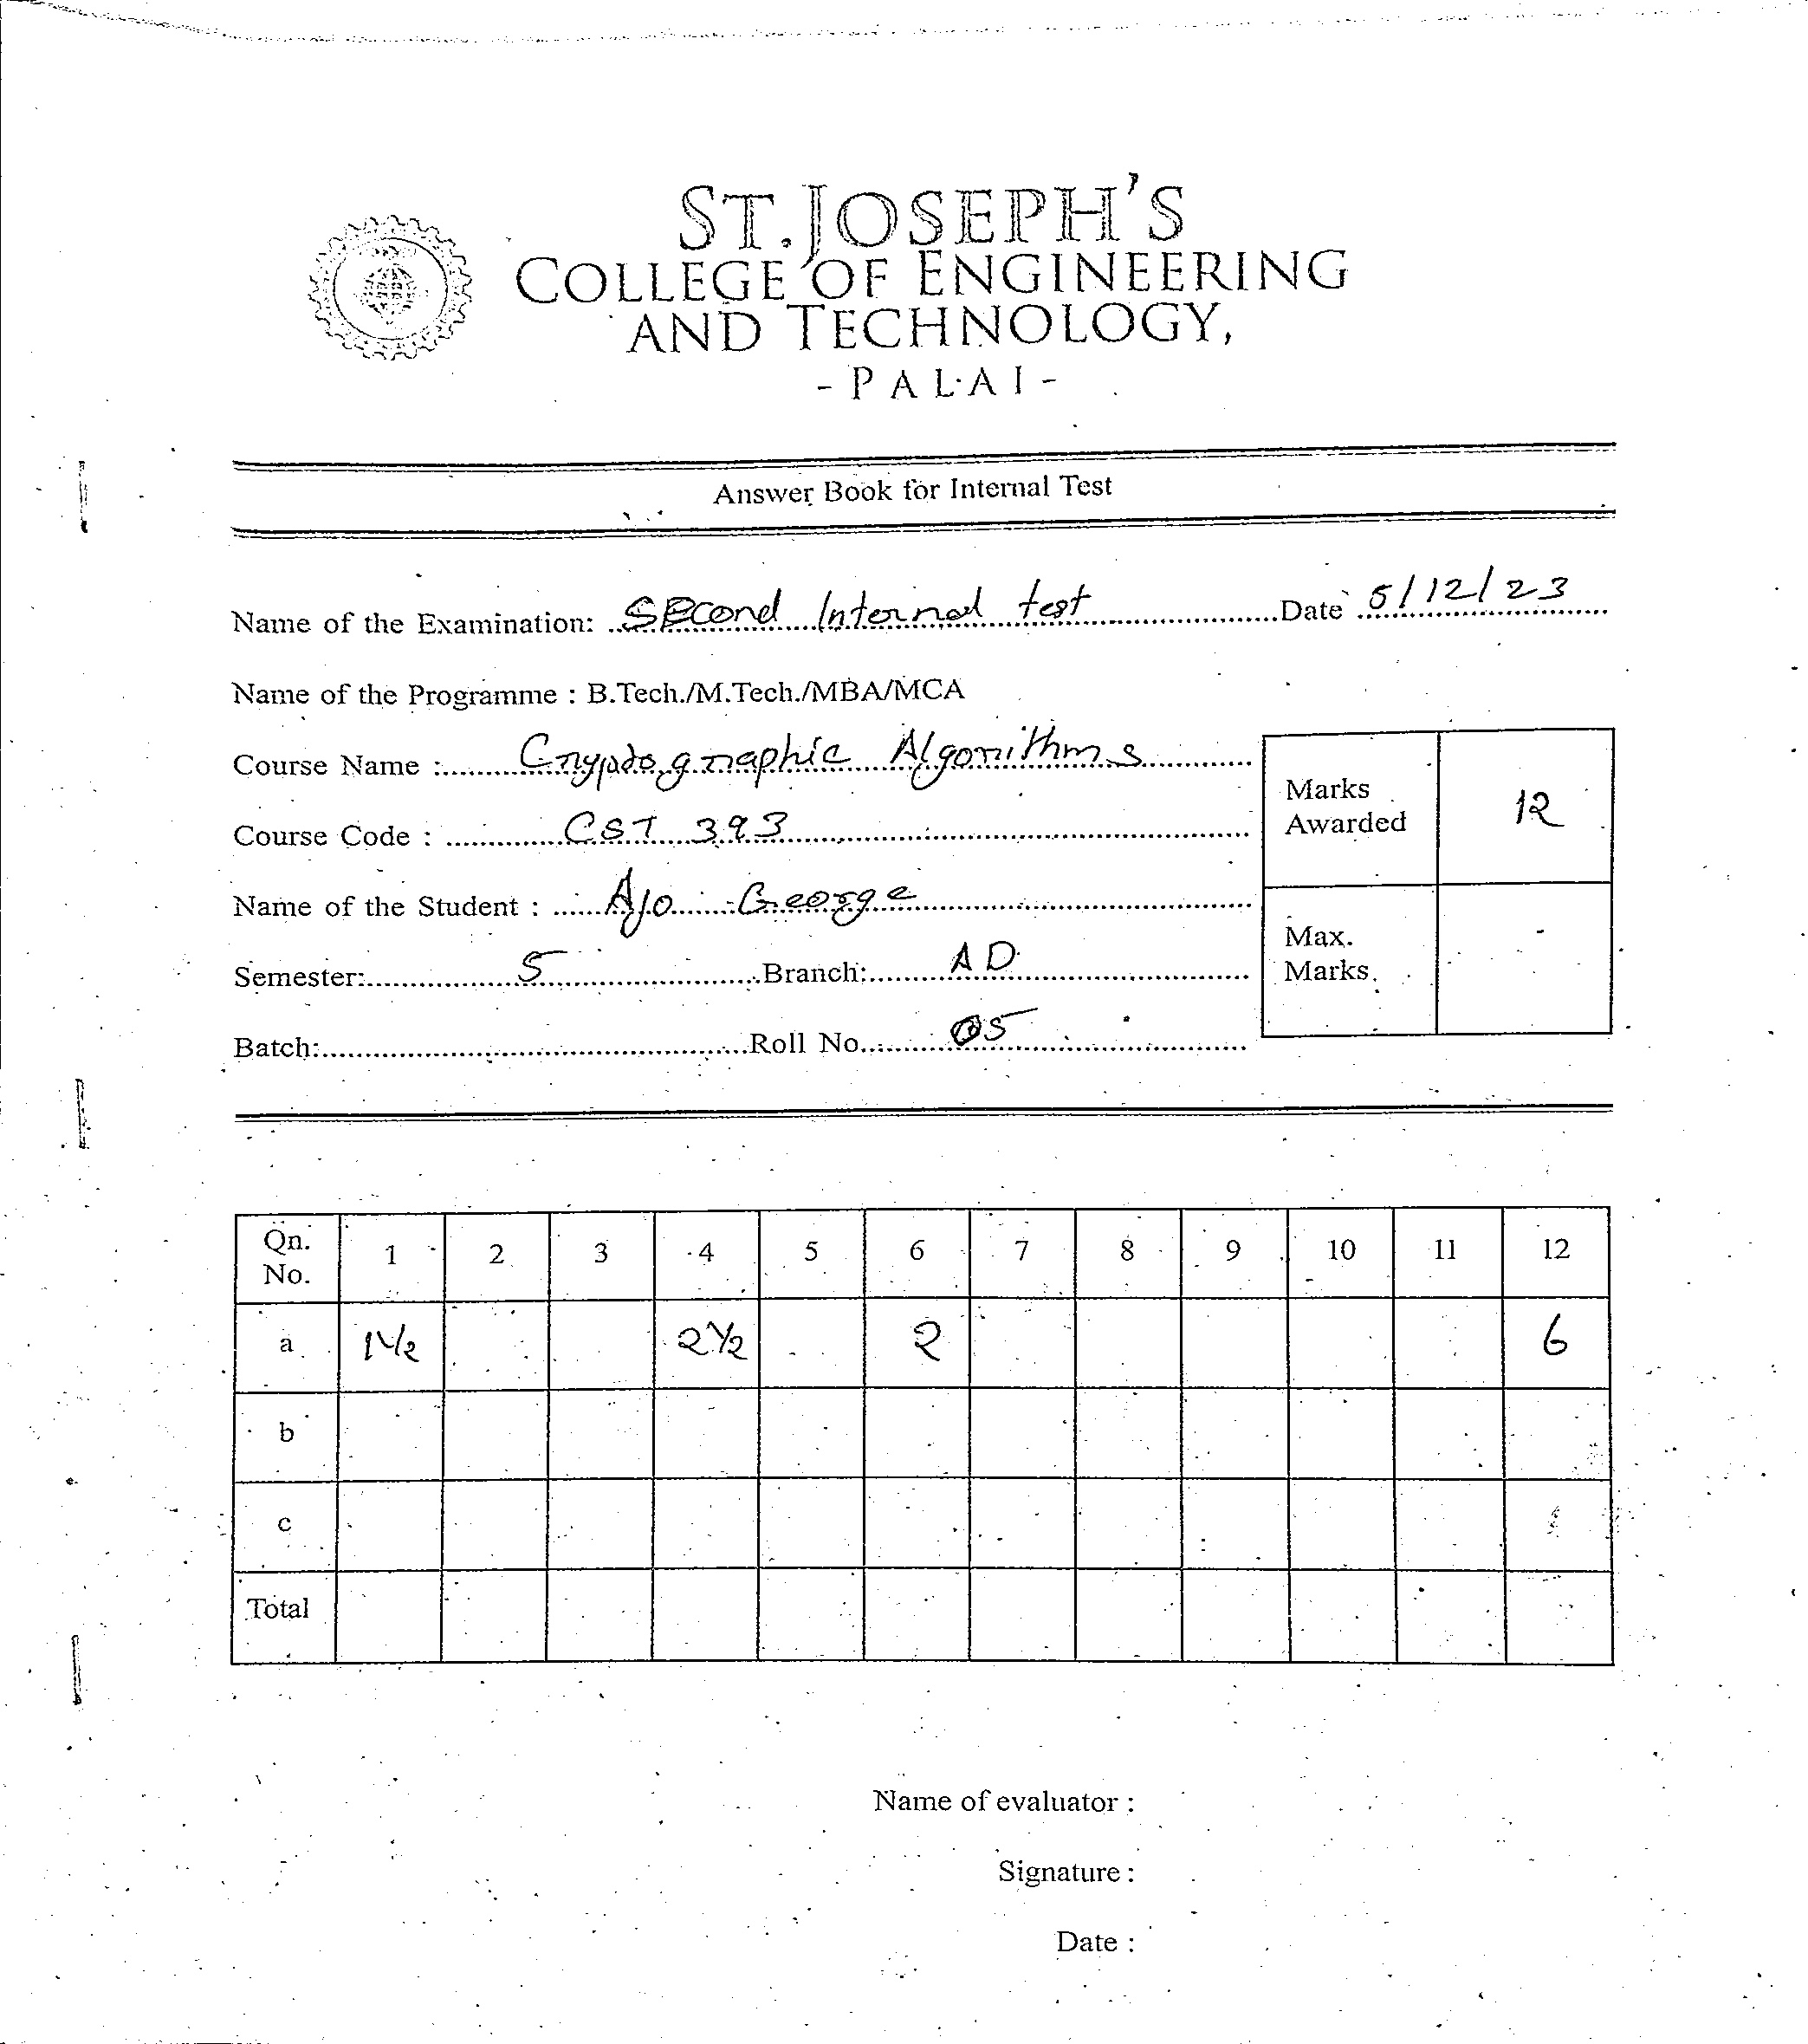 ST. JOSEPH'S
COLLEGE OF ENGINEERING
AND TECHNOLOGY,
- PALAI -
Answer Book for Internal Test
Name of the Examination: Second Internal test Date 5/12/23
Name of the Programme : B.Tech./M.Tech./MBA/MCA
Course Name : Cryptographic Algorithms
Course Code : CST 393
Name of the Student : Ajo George
Semester: 5 Branch: AD
Batch: Roll No. 05
Marks Awarded 12
Max. Marks
Qn. No. 1 2 3 4 5 6 7 8 9 10 11 12
a 1 1/2 2 1/2 2 6
b
c
Total
Name of evaluator :
Signature :
Date :